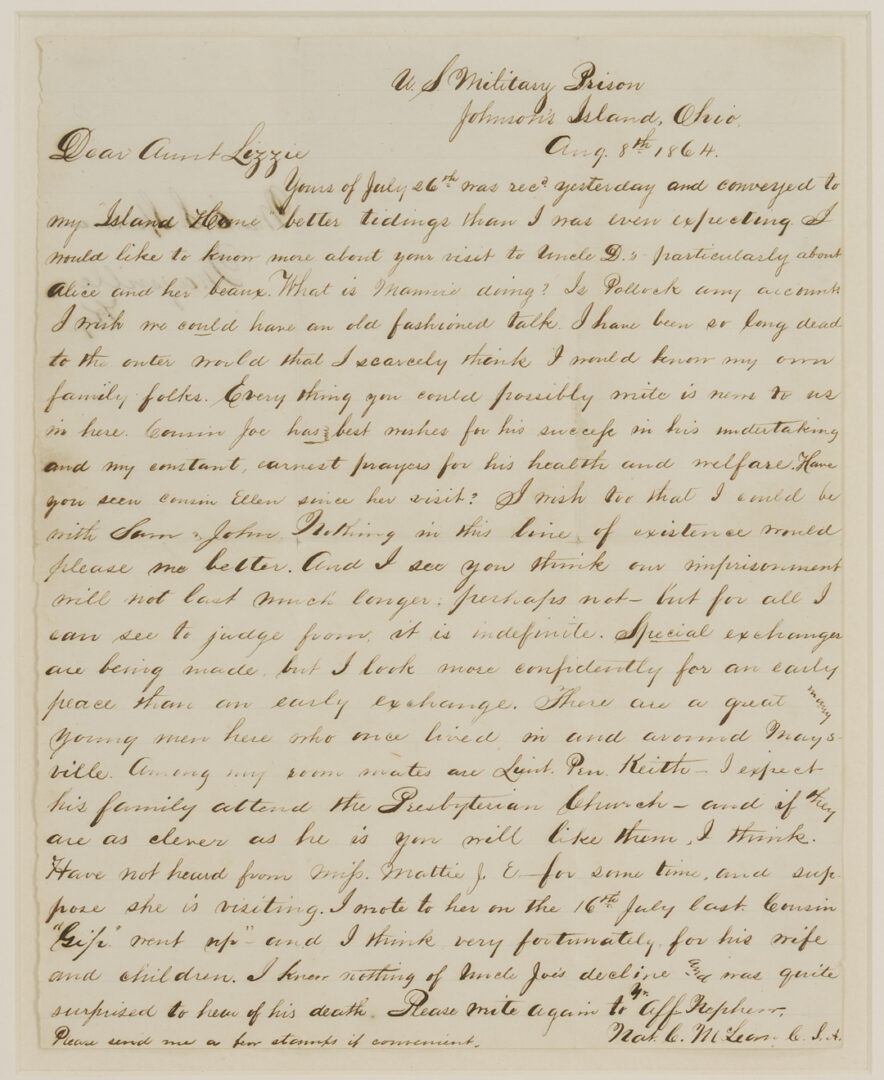 U. S Military Prison
Johnson's Island, Ohio.
Aug. 8th 1864.
Dear Aunt Lizzie
Yours of July 26th was recd yesterday and conveyed to
my "Island Home" better tidings than I was even expecting. I
would like to know more about your visit to Uncle D.s particularly about
Alice and her beaux. What is Mannie doing? Is Pollock any account
I wish we could have an old fashioned talk. I have been so long dead
to the outer world that I scarcely think I would know my own
family folks. Every thing you could possibly write is news to us
in here. Cousin Joe has best wishes for his success in his undertaking
and my constant, earnest prayers for his health and welfare. Have
you seen cousin Ellen since her visit? I wish too that I could be
with Sam & John. Nothing in this line of existence would
please me better. And I see you think our imprisonment
will not last much longer; perhaps not – but for all I
can see to judge from, it is indefinite. Special exchanges
are being made, but I look more confidently for an early
peace than an early exchange. There are a great many
young men here who once lived in and around Mays-
ville. Among my room mates are Lieut. Pen. Keith – I expect
his family attend the Presbyterian Church – and if they
are as clever as he is you will like them, I think.
Have not heard from Miss. Mattie J. E – for some time, and sup-
pose she is visiting. I wrote to her on the 16th July last. Cousin
"Gip" "went up" – and I think very fortunately for his wife
and children. I knew nothing of Uncle Joe's decline and was quite
surprised to hear of his death. Please write again to Yr. Aff Nephew,
Please send me a few stamps if convenient.
Nat. C. McLean C. S. A.